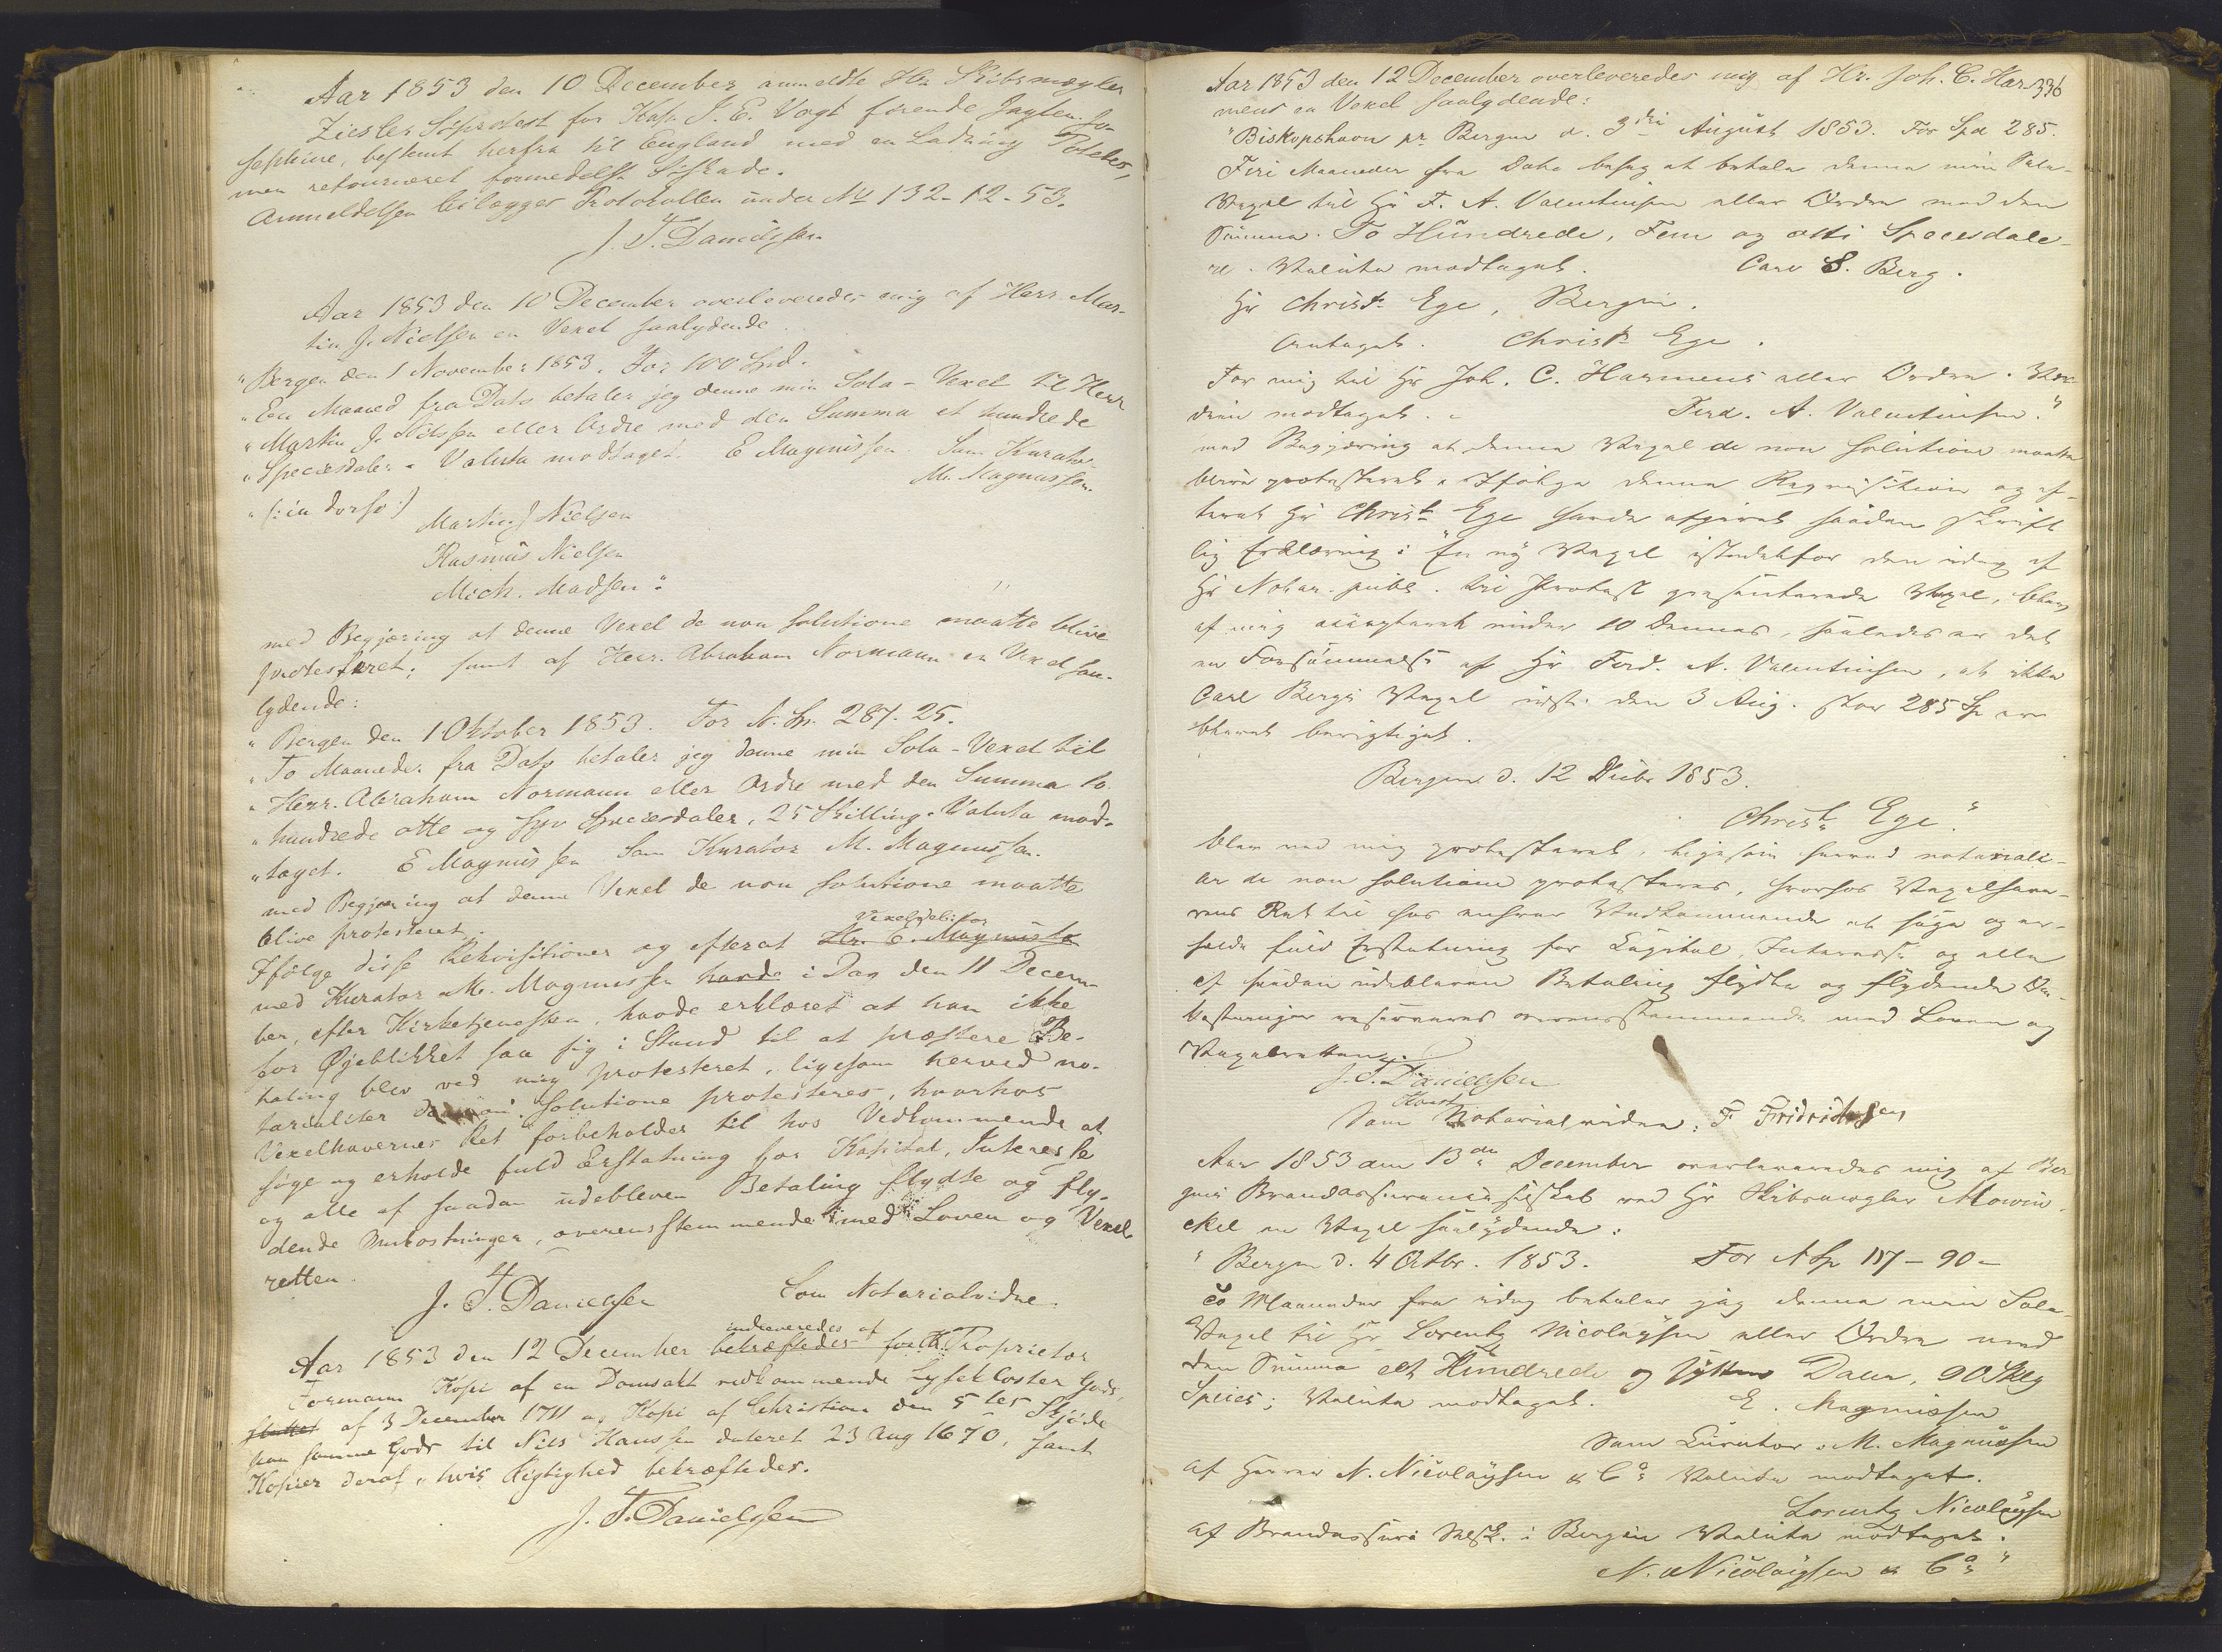 Aar 1853 den 10 December anmeldte Hr. Skibsmægler
Ziesler Söprotest for Kapt. J. E. Vogt förende Jagten Jo-
sephine, bestemt herfra til England med en Ladning Poteter,
men retourneret formedelst Söskade.
Anmeldelsen bilægges Protokollen under No 132-12-53.
J. F. Danielssen
Aar 1853 den 10 December overleveredes mig af Herr Mar-
tin J. Nielsen en Vexel saalydende
"Bergen den 1 November 1853. For 100 Spd.
"Een Maaned fra Dato betaler jeg denne min Sola-Vexel til Herr
"Martin J. Nilssen eller Ordre med den Summa et hundrede
"Speciesdaler. Valuta modtaget. E Magnussen Som Kurator
M. Magnussen.
"(: in dorso :)
Martin J Nielsen
Rasmus Nielsen
Mich. Madsen"
med Begjæring at denne Vexel de non solutione maatte blive
protesteret; samt af Herr. Abraham Normann en Vexel saa-
lydende:
"Bergen den 1 Oktober 1853. For N. Sp. 287. 25.
"To Maaneder fra Dato betaler jeg denne min Sola-Vexel til
"Herr. Abraham Normann eller Ordre med den Summa to
"hundrede otte og syv Speciesdaler, 25 Skilling. Valuta mod-
"taget. E Magnussen Som Kurator M. Magnussen.
med Begjæring at denne Vexel de non solutione maatte
blive protesteret.
Vexeldebitor
Ifölge disse Rekvisitioner og efterat Hr. E. Magnussen
med Kurator M. Magnussen havde i Dag den 11 Decem-
ber, efter Kirketjenesten, havde erklæret at han ikke
for Øjeblikket saa sig i Stand til at præstere Be-
taling blev ved mig protesteret, ligesom herved no-
tarialiter de non solutione protesteres, hvorhos
Vexelhavernes Ret forbeholdes til hos Vedkommende at
söge og erholde fuld Erstatning for Kapital, Interesse
og alle af saadan udebleven Betaling flydte og fly-
dende Omkostninger, overensstemmende med Loven og Vexel
retten.
J. F. Danielssen Som Notarialvidne:
indleveredes af
Aar 1853 den 12 December bekræftedes for Proprietor
Formann Kopi af en Domsakt vedkommende Lysekloster Gods,
af 3 December 1711 og Kopi af Christian den 5tes Skjöde
paa samme Gods til Nils Hanssen dateret 23 Aug 1670, samt
Kopier deraf, hvis Rigtighed bekræftedes.
J. F. Danielssen
336
Aar 1853 den 12 December overleveredes mig af Hr. Joh. C. Har-
mens en Vexel saalydende:
"Biskopshavn pr. Bergen d. 3die August 1853. For Spd 285.
Firi Maaneder fra Dato behag at betale denne min Sola-
Vexel til Hr F. A. Valentinsen eller Ordre med den
Summa. To Hundrede, Fem og otti Speciesdale-
re. Valuta modtaget. Carl S. Berg.
Hr Christ. Ege, Bergen.
Antaget. Christ. Ege.
For mig til Hr Joh. C. Harmens eller Ordre. Vær-
dien modtaget. Ferd. A. Valentinsen."
med Begjæring at denne Vexel de non solution maatte
blive protesteret. Ifölge denne Requisition og ef-
terat Hr Christ. Ege havde afgivet saadan skrift-
lig Erklæring: "En ny Vexel istedetfor den idag af
Hr Notar. publ. til Protest presenterede Vexel, blev
af mig accepteret under 10 Dennes, saaledes er det
en Forsömmelse af Hr Ferd. A. Valentinsen, at ikke
Carl Bergs Vexel udst. den 3 Aug. stor 285 Sp er
blevet berigtiget.
Bergen d. 12 Decbr 1853.
Christ. Ege."
blev ved mig protesteret, ligesom herved notariali-
ter de non solutione protesteres, hvorhos Vexelhave-
rens Ret til hos enhver Vedkommende at söge og er-
holde fuld Erstatning for Capital, Interesse og alle
af saadan udebleven Betaling flydte og flydende Om-
kostninger reserveres overensstemmende med Loven og
Vexelretten.
J. F. Danielssen
Konst
Som Notarialvidne: F Fridrichsen
Aar 1853 den 13de December overleveredes mig af Ber
gens Brandassuranceselskab ved Hr Skibsmægler Mowin-
ckel en Vexel saalydende:
"Bergen d. 4 Octbr. 1853. For N Sp 117-90-
To Maaneder fra idag betaler jeg denne min Sola-
Vexel til Hr Lorentz Nicolaysen eller Ordre med
den Summa et Hundrede og sytten Daler, 90 Skg
Species; Valuta modtaget. E. Magnussen
Som Curator M. Magnussen
af Herrer N. Nicolaysen & Co Valuta modtaget.
Lorentz Nicolaysen
af Brandassur. Selsk. i Bergen Valuta modtaget.
N. Nicolaysen & Co"